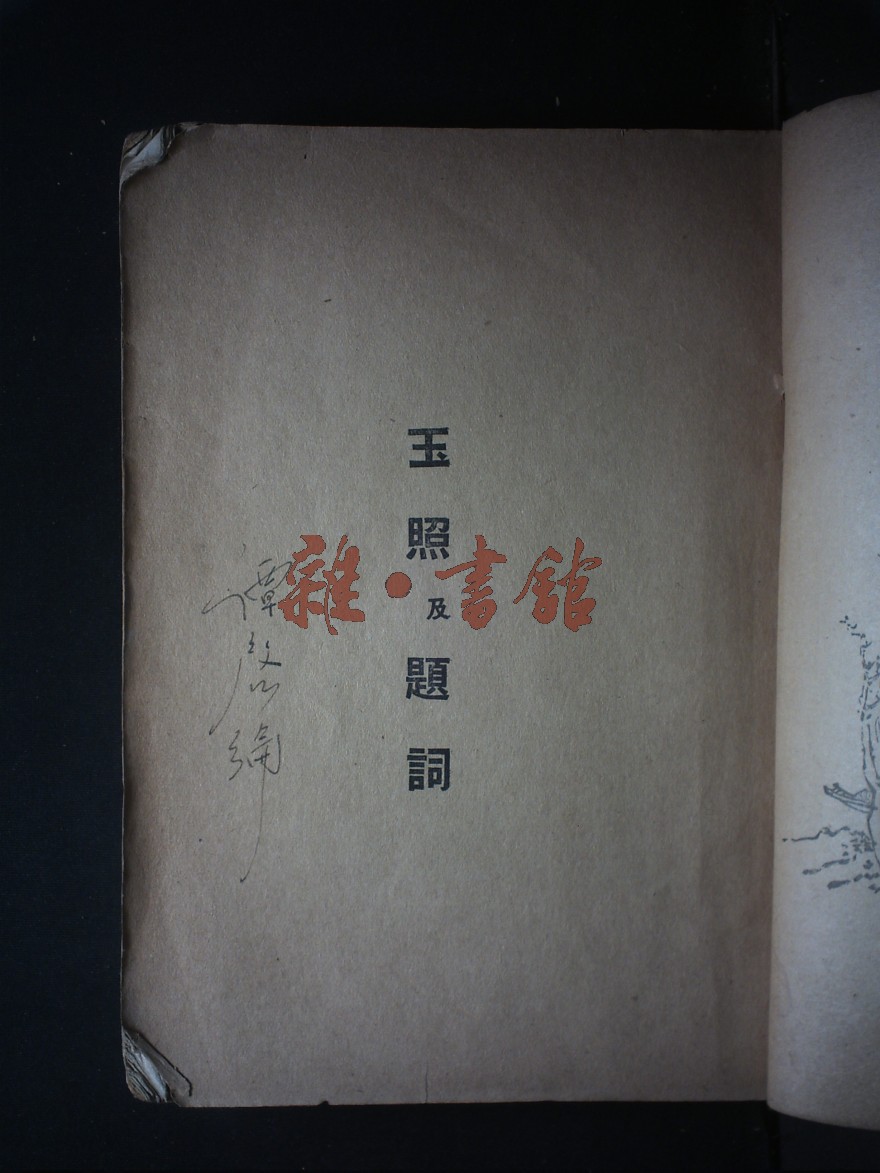 玉照及題詞
雜·書館